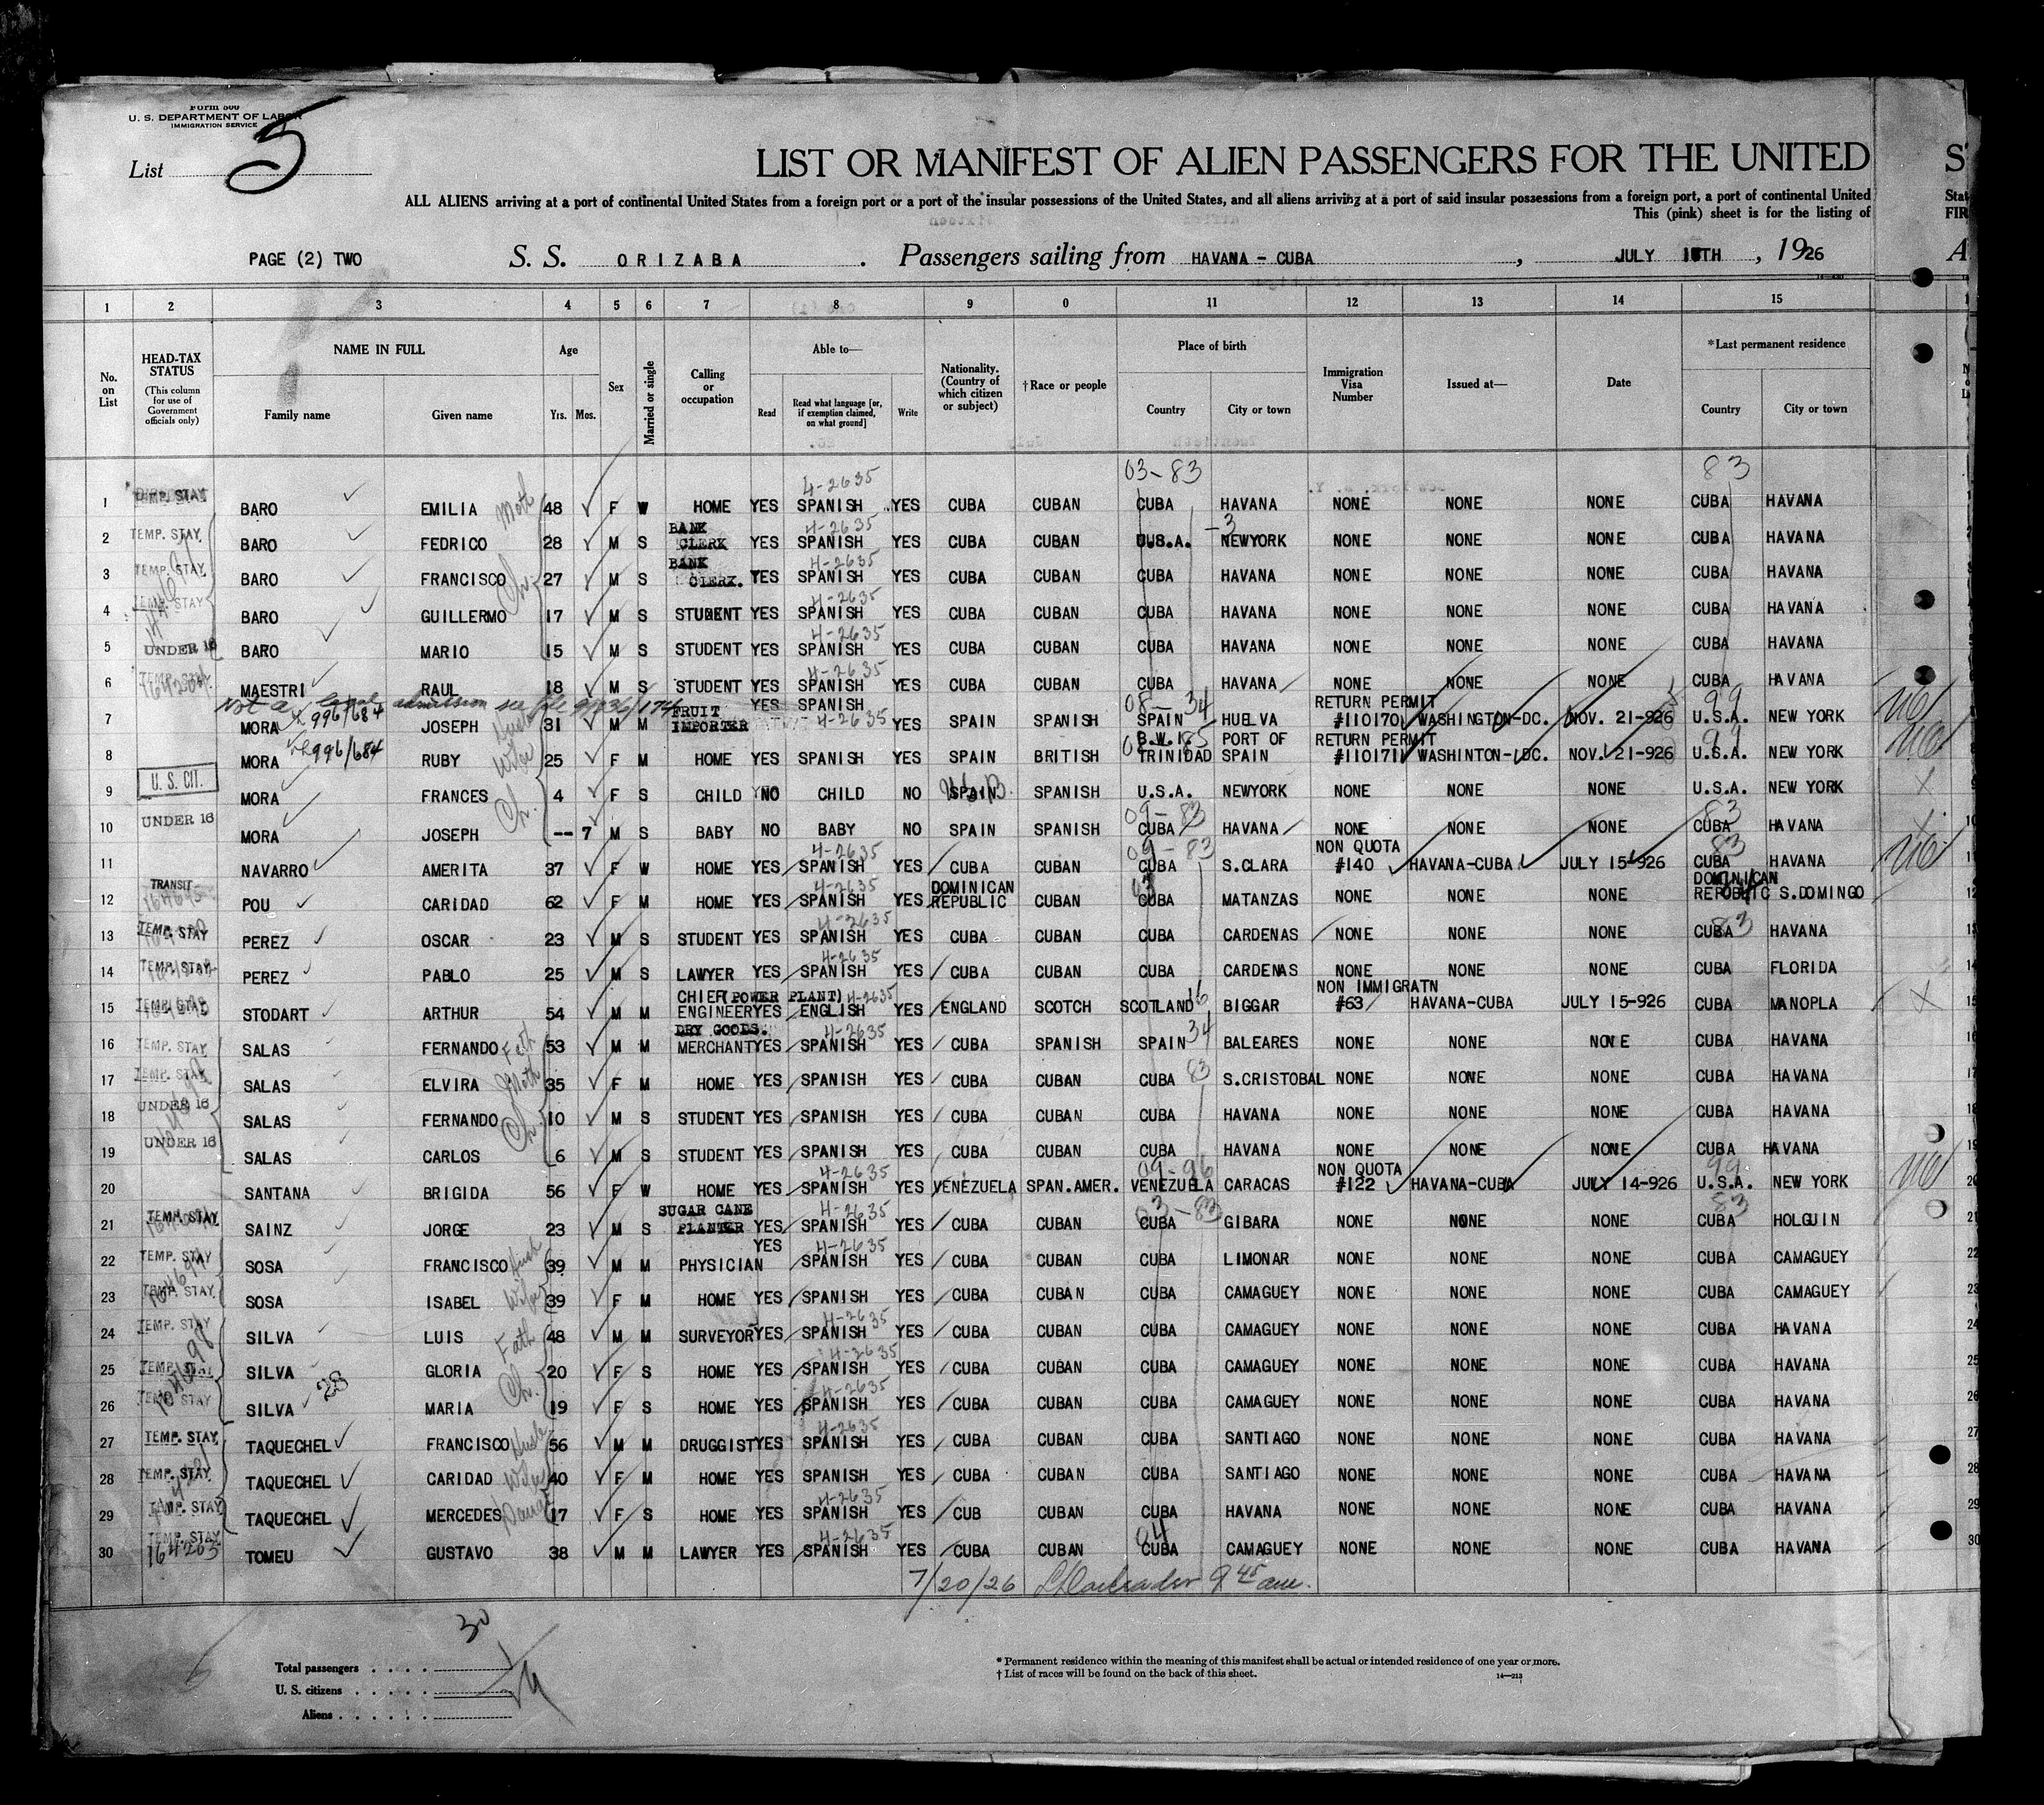 Form 500
U. S. DEPARTMENT OF LABOR
IMMIGRATION SERVICE
List 5
LIST OR MANIFEST OF ALIEN PASSENGERS FOR THE UNITED
ALL ALIENS arriving at a port of continental United States from a foreign port or a port of the insular possessions of the United States, and all aliens arriving at a port of said insular possessions from a foreign port, a port of continental United
This (pink) sheet is for the listing of
PAGE (2) TWO S. S. ORIZABA. Passengers sailing from HAVANA - CUBA, JULY TH, 1926
1 2 3 4 5 6 7 8 9 0 11 12 13 14 15
No. on List HEAD-TAX STATUS (This column for use of Government officials only) NAME IN FULL Family name Given name Age Yrs. Mos. Sex Married or single Calling or occupation Able to— Read Read what language [or, if exemption claimed, on what ground] Write Nationality. (Country of which citizen or subject) †Race or people Place of birth Country City or town Immigration Visa Number Issued at— Date *Last permanent residence Country City or town
03-83 83
1 TEMP. STAY BARO EMILIA Moth 48 F W HOME YES 4-2635 SPANISH YES CUBA CUBAN CUBA HAVANA NONE NONE NONE CUBA HAVANA
2 TEMP. STAY BARO FEDRICO 28 M S BANK CLERK YES 4-2635 SPANISH YES CUBA CUBAN U.S.A. -3 NEWYORK NONE NONE NONE CUBA HAVANA
3 TEMP. STAY BARO FRANCISCO Ch. 27 M S BANK CLERK. YES 4-2635 SPANISH YES CUBA CUBAN CUBA HAVANA NONE NONE NONE CUBA HAVANA
4 TEMP. STAY BARO GUILLERMO 17 M S STUDENT YES 4-2635 SPANISH YES CUBA CUBAN CUBA HAVANA NONE NONE NONE CUBA HAVANA
5 UNDER 16 BARO MARIO 15 M S STUDENT YES 4-2635 SPANISH YES CUBA CUBAN CUBA HAVANA NONE NONE NONE CUBA HAVANA
6 TEMP. STAY MAESTRI RAUL 18 M S STUDENT YES 4-2635 SPANISH YES CUBA CUBAN CUBA HAVANA NONE NONE NONE CUBA HAVANA
Not a legal admission see file
7 MORA 996/684 JOSEPH 31 M M FRUIT IMPORTER YES SPANISH 4-2635 YES SPAIN SPANISH 08-34 SPAIN HUELVA RETURN PERMIT #110170 WASHINGTON-DC. NOV. 21-926 99 U.S.A. NEW YORK
8 MORA 996/684 RUBY Wife 25 F M HOME YES SPANISH YES SPAIN BRITISH B.W.I. TRINIDAD PORT OF SPAIN RETURN PERMIT #110171 WASHINTON-DC. NOV. 21-926 99 U.S.A. NEW YORK
9 U. S. CIT. MORA FRANCES Ch. 4 F S CHILD NO CHILD NO SPAIN SPANISH U.S.A. NEWYORK NONE NONE NONE U.S.A. NEW YORK
10 UNDER 16 MORA JOSEPH -- 7 M S BABY NO BABY NO SPAIN SPANISH 09-83 CUBA HAVANA NONE NONE NONE 83 CUBA HAVANA
11 NAVARRO AMERITA 37 F W HOME YES 4-2635 SPANISH YES CUBA CUBAN 09-83 CUBA S.CLARA NON QUOTA #140 HAVANA-CUBA JULY 15-926 83 CUBA HAVANA
12 TRANSIT POU CARIDAD 62 F M HOME YES 4-2635 SPANISH YES DOMINICAN REPUBLIC CUBAN CUBA MATANZAS NONE NONE NONE DOMINICAN REPUBLIC S.DOMINGO
13 TEMP. STAY PEREZ OSCAR 23 M S STUDENT YES 4-2635 SPANISH YES CUBA CUBAN CUBA CARDENAS NONE NONE NONE CUBA 83 HAVANA
14 TEMP. STAY PEREZ PABLO 25 M S LAWYER YES 4-2635 SPANISH YES CUBA CUBAN CUBA CARDENAS NONE NONE NONE CUBA FLORIDA
15 TEMP. STAY STODART ARTHUR 54 M M CHIEF (POWER PLANT) ENGINEER YES 4-2635 ENGLISH YES ENGLAND SCOTCH SCOTLAND 16 BIGGAR NON IMMIGRATN #63 HAVANA-CUBA JULY 15-926 CUBA MANOPLA
16 TEMP. STAY SALAS FERNANDO Fath 53 M M DRY GOODS. MERCHANT YES 4-2635 SPANISH YES CUBA SPANISH SPAIN 34 BALEARES NONE NONE NONE CUBA HAVANA
17 TEMP. STAY SALAS ELVIRA Moth 35 F M HOME YES SPANISH YES CUBA CUBAN CUBA 83 S.CRISTOBAL NONE NONE NONE CUBA HAVANA
18 UNDER 16 SALAS FERNANDO Ch. 10 M S STUDENT YES SPANISH YES CUBA CUBAN CUBA HAVANA NONE NONE NONE CUBA HAVANA
19 UNDER 16 SALAS CARLOS 6 M S STUDENT YES SPANISH YES CUBA CUBAN CUBA HAVANA NONE NONE NONE CUBA HAVANA
20 SANTANA BRIGIDA 56 F W HOME YES 4-2635 SPANISH YES VENEZUELA SPAN.AMER. 09-96 VENEZUELA CARACAS NON QUOTA #122 HAVANA-CUBA JULY 14-926 99 U.S.A. NEW YORK
21 TEMP. STAY SAINZ JORGE 23 M S SUGAR CANE PLANTER YES 4-2635 SPANISH YES CUBA CUBAN 03-83 CUBA GIBARA NONE NONE NONE 83 CUBA HOLGUIN
22 TEMP. STAY SOSA FRANCISCO Husb 39 M M PHYSICIAN YES 4-2635 SPANISH YES CUBA CUBAN CUBA LIMONAR NONE NONE NONE CUBA CAMAGUEY
23 TEMP. STAY SOSA ISABEL Wife 39 F M HOME YES SPANISH YES CUBA CUBAN CUBA CAMAGUEY NONE NONE NONE CUBA CAMAGUEY
24 TEMP. STAY SILVA LUIS Fath 48 M M SURVEYOR YES 4-2635 SPANISH YES CUBA CUBAN CUBA CAMAGUEY NONE NONE NONE CUBA HAVANA
25 TEMP. STAY SILVA GLORIA Ch. 20 F S HOME YES 4-2635 SPANISH YES CUBA CUBAN CUBA CAMAGUEY NONE NONE NONE CUBA HAVANA
26 TEMP. STAY SILVA 28 MARIA 19 F S HOME YES 4-2635 SPANISH YES CUBA CUBAN CUBA CAMAGUEY NONE NONE NONE CUBA HAVANA
27 TEMP. STAY TAQUECHEL FRANCISCO Husb 56 M M DRUGGIST YES 4-2635 SPANISH YES CUBA CUBAN CUBA SANTIAGO NONE NONE NONE CUBA HAVANA
28 TEMP. STAY TAQUECHEL CARIDAD Wife 40 F M HOME YES SPANISH YES CUBA CUBAN CUBA SANTIAGO NONE NONE NONE CUBA HAVANA
29 TEMP. STAY TAQUECHEL MERCEDES 17 F S HOME YES 4-2635 SPANISH YES CUB CUBAN CUBA HAVANA NONE NONE NONE CUBA HAVANA
30 TEMP. STAY 164203 TOMEU GUSTAVO 38 M M LAWYER YES 4-2635 SPANISH YES CUBA CUBAN 84 CUBA CAMAGUEY NONE NONE NONE CUBA HAVANA
7/20/26 9 45 am.
30
Total passengers
U. S. citizens
Aliens
* Permanent residence within the meaning of this manifest shall be actual or intended residence of one year or more.
† List of races will be found on the back of this sheet. 14—213